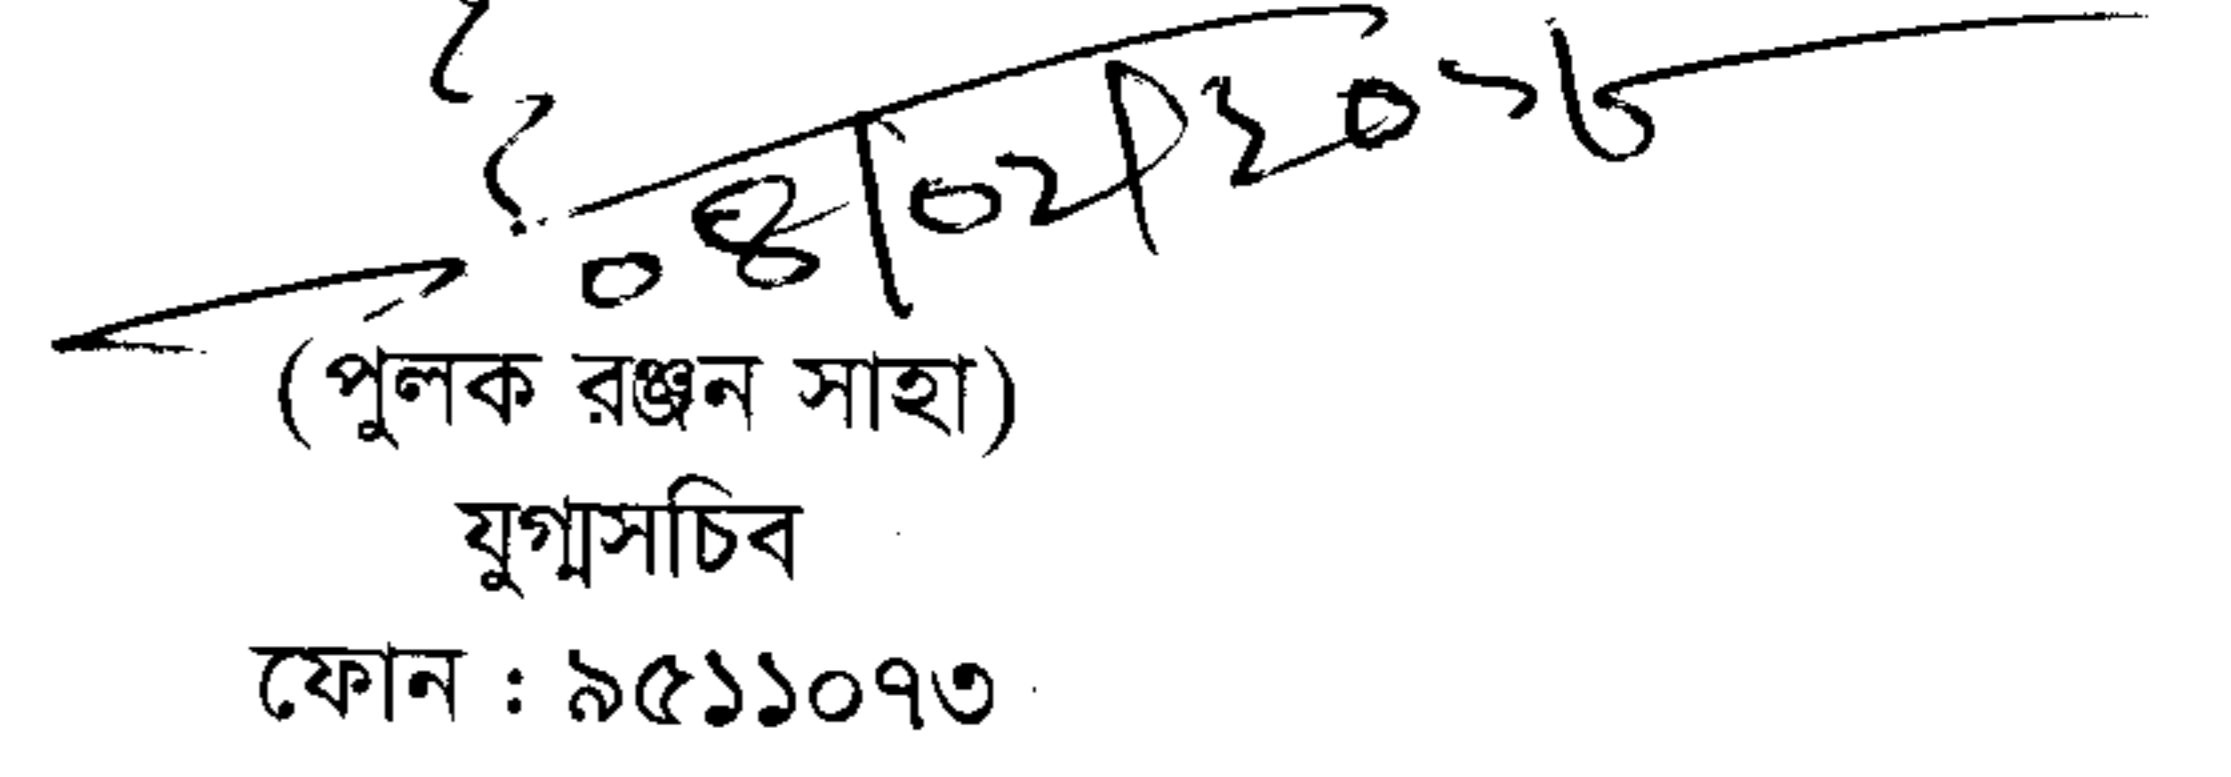 ০৪/০২/২০১৮
(পুলক রঞ্জন সাহা)
যুগ্মসচিব
ফোন : ৯৫১১০৭৩